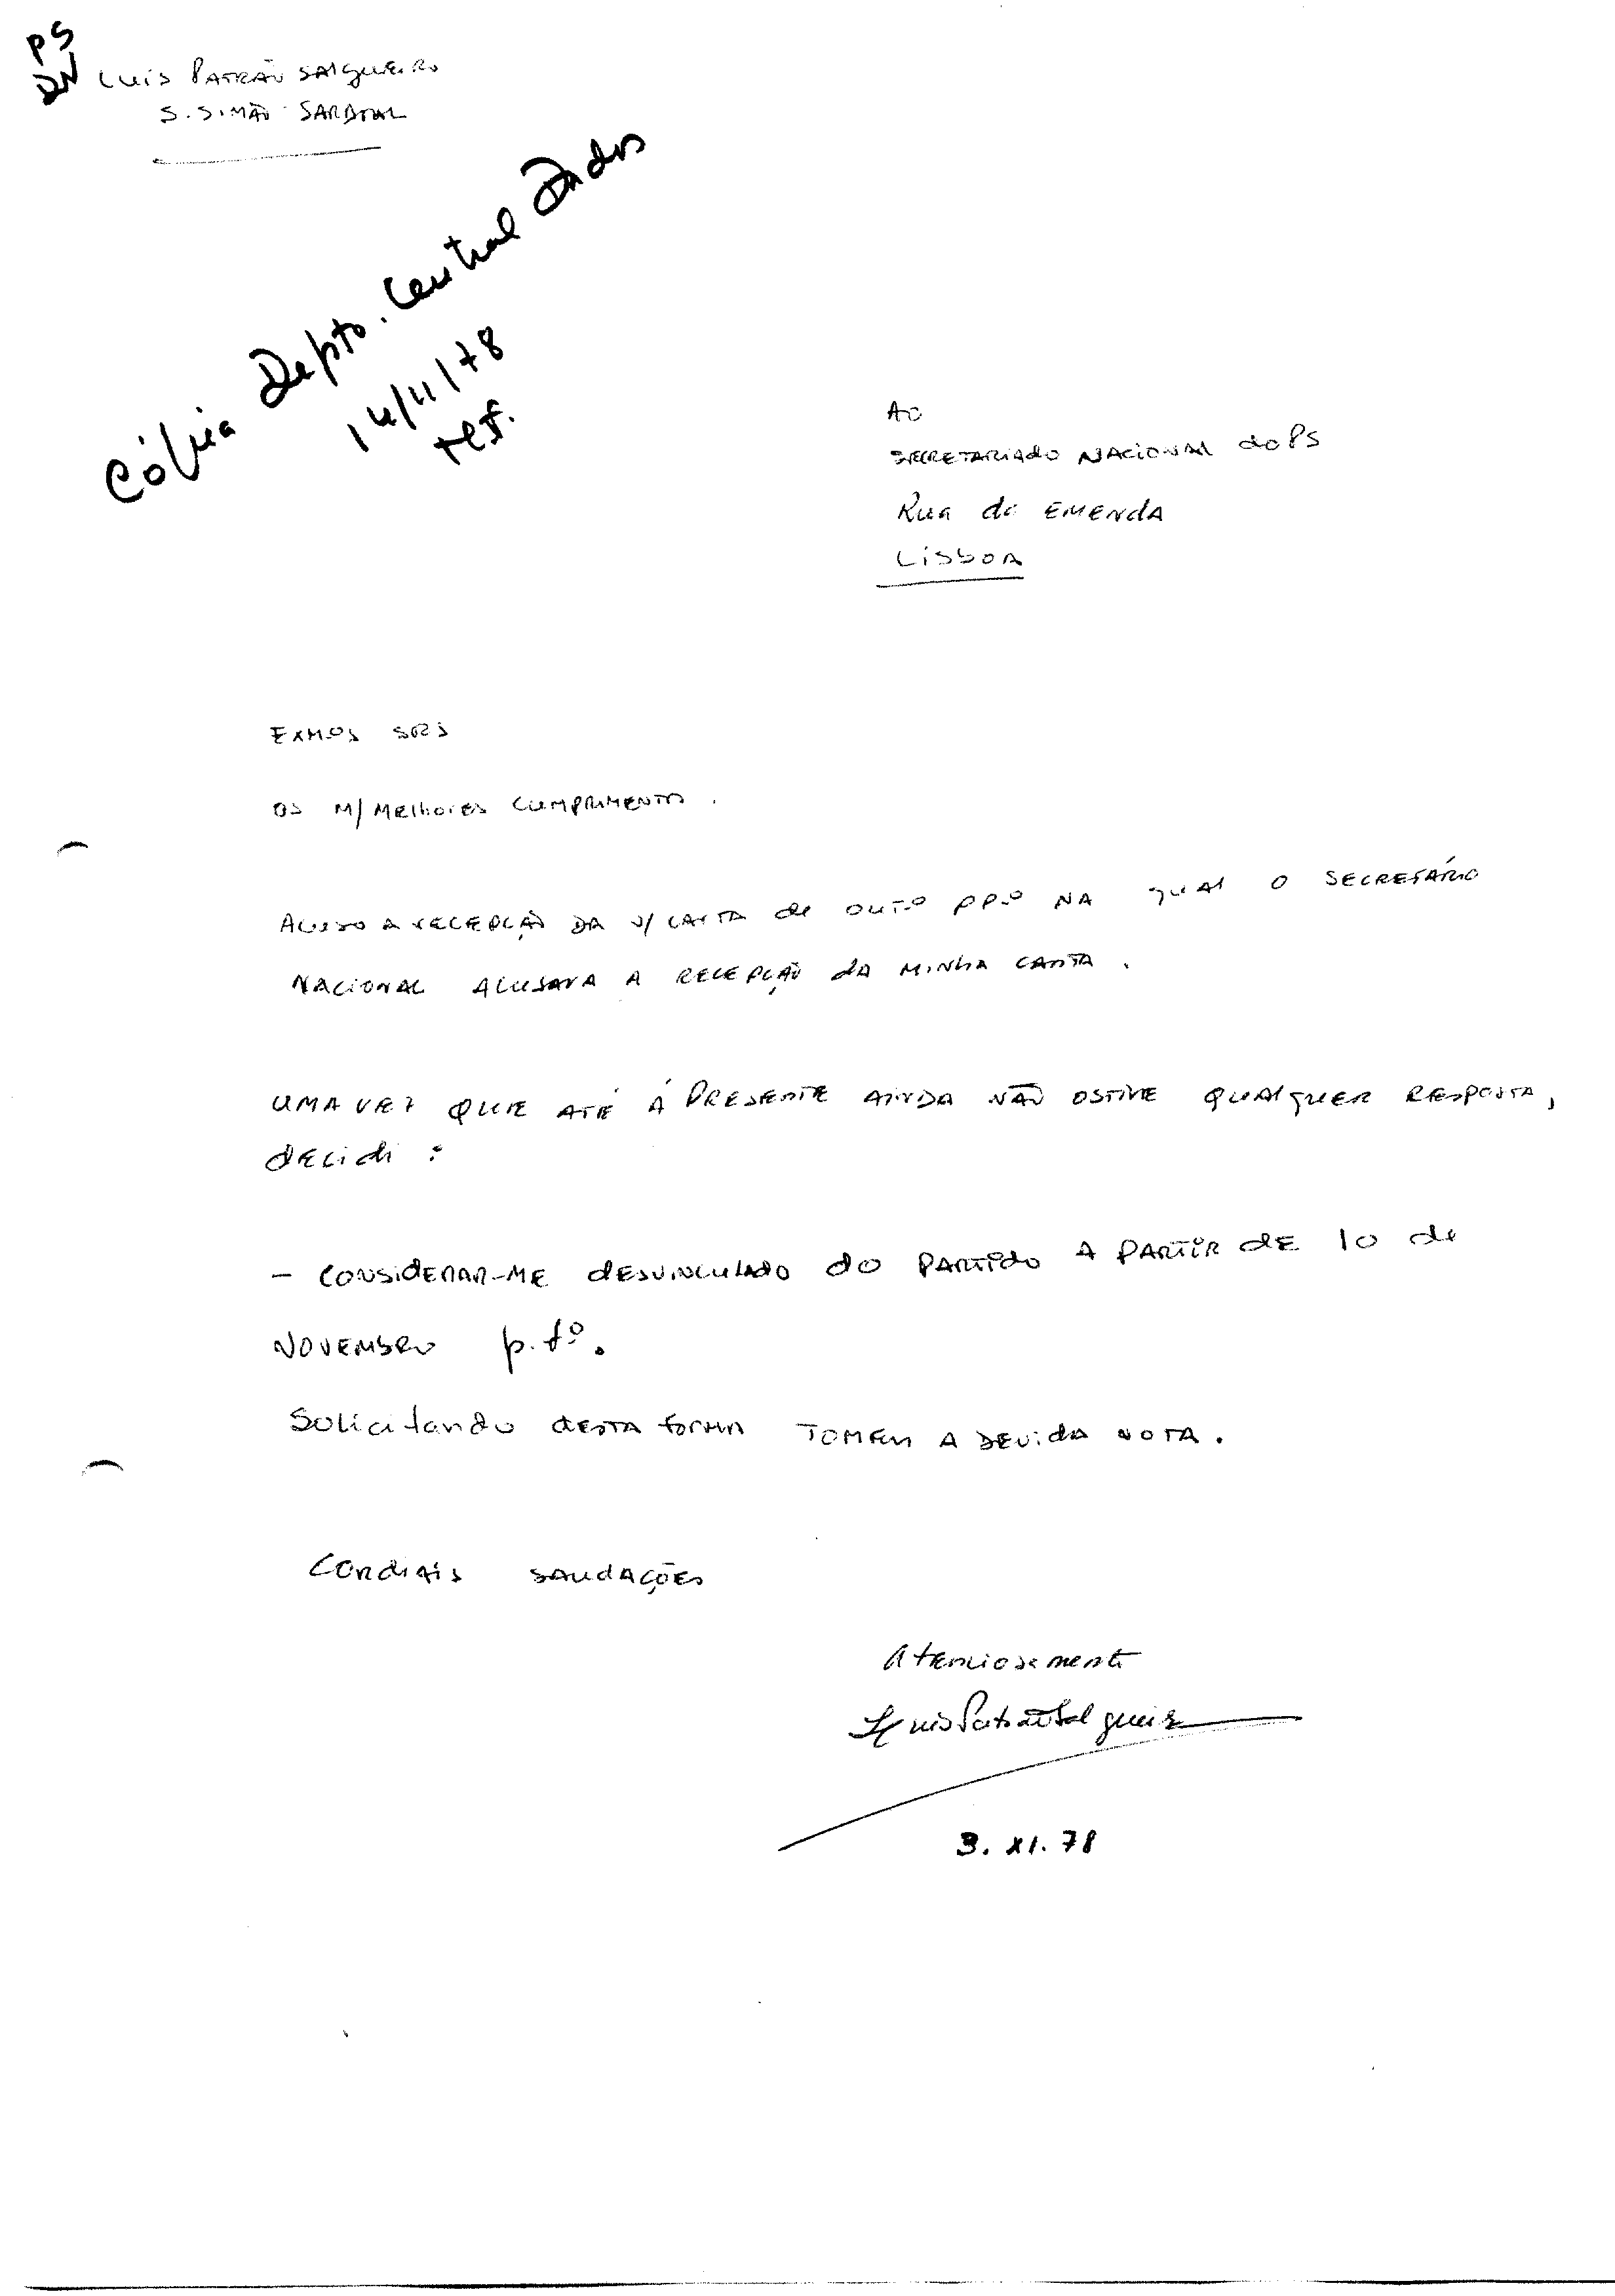 PS
DN
LUIS PATRÃO SALGUEIRO
S. SIMÃO SARDOAL
Cópia Depto. Central Dados
14/11/78
AO
SECRETARIADO NACIONAL do PS
Rua da EMENDA
LISBOA
EXMOS SRS
OS M/ MELHORES CUMPRIMENTOS .
ACUSO A RECEPÇÃO DA V/ CARTA de OUT.º PP.º NA QUAL O SECRETÁRIO
NACIONAL ACUSAVA A RECEPÇÃO dA MINHA CARTA .
UMA VEZ QUE ATÉ Á PRESENTE AINDA NÃO OBTIVE QUALQUER RESPOSTA,
dECIdi :
- CONSIDERAR-ME dESVINCULADO do PARTIDO A PARTIR dE 10 de
NOVEMBRO p. fº.
Solicitando dESTA forma TOMEM A DEVIdA NOTA .
CORdIAIS SAUDAÇÕES
Atenciosamente
Luis Patrão Salgueiro
3. XI. 78